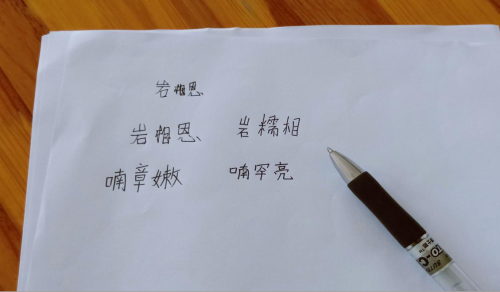 岩相恩
岩相恩 岩糯相
喃章嫩 喃罕亮